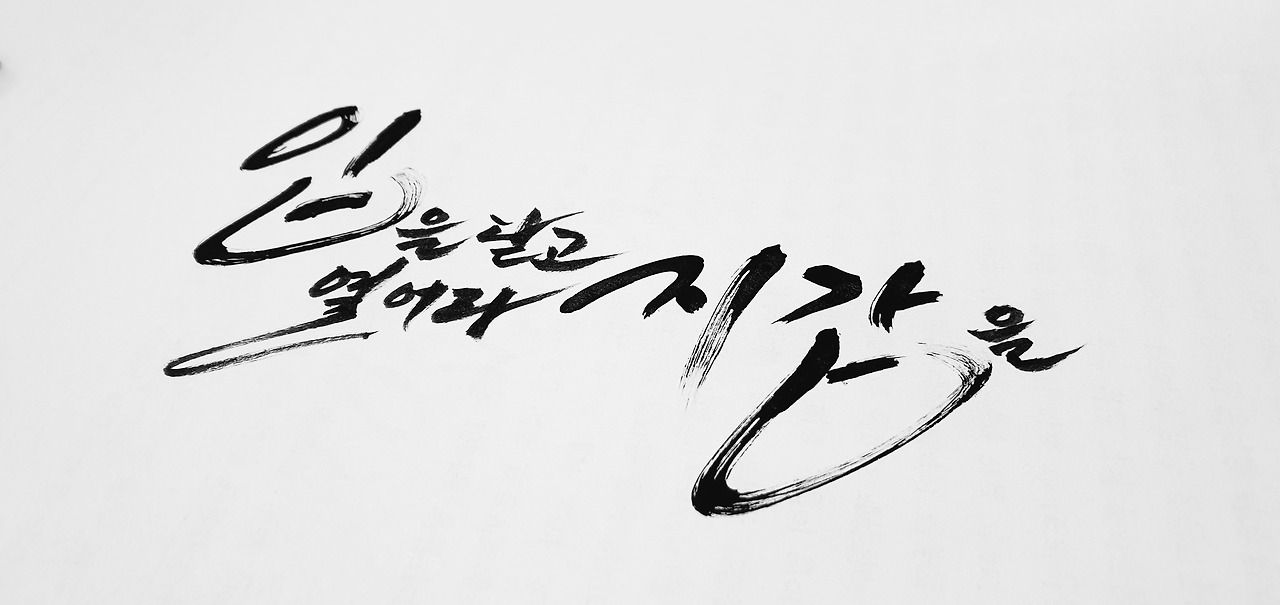 입을 닫고
열어라 지갑을